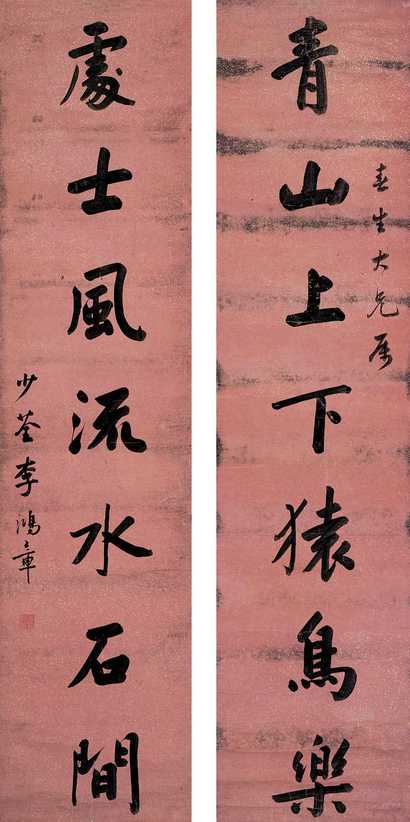 青山上下猿鳥樂
春生大兄属
處士風流水石間
少荃李鴻章